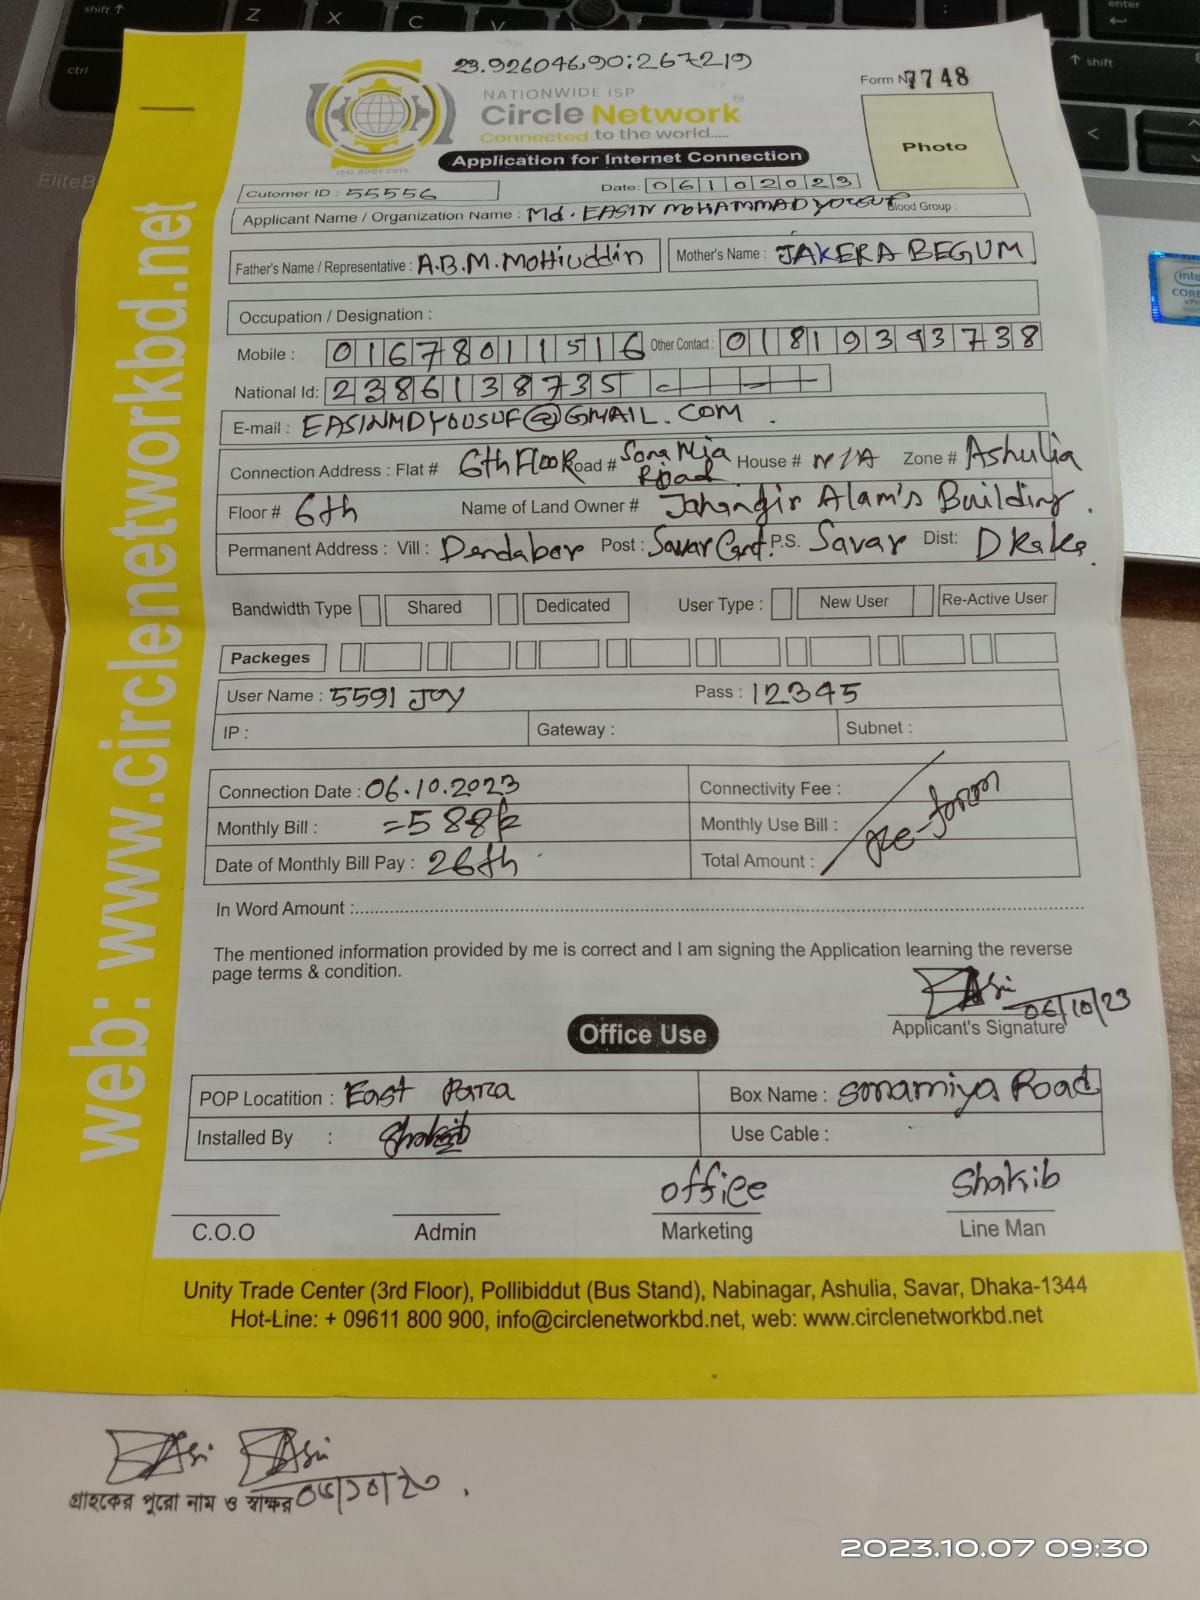 23.926046,90:267219
Form No 7748
NATIONWIDE ISP
Circle Network
Connected to the world.....
ISO 9001:2015
Application for Internet Connection
Photo
Cutomer ID : 55556
Date: 06102023
Applicant Name / Organization Name : Md. EASIN MOHAMMAD YOUSUF Blood Group :
Father's Name / Representative : A.B.M. Mohiuddin Mother's Name : JAKERA BEGUM
Occupation / Designation :
Mobile : 01678011516 Other Contact : 01819393738
National Id: 2386138735
E-mail : EASINMDYOUSUF@GMAIL.COM
Connection Address : Flat # 6th Floor Road # Sona Mia Road House # N/A Zone # Ashulia
Floor # 6th Name of Land Owner # Jahangir Alam's Building.
Permanent Address : Vill : Dendabor Post : Savar Cant. P.S. Savar Dist: Dhaka.
Bandwidth Type Shared Dedicated User Type : New User Re-Active User
Packeges
User Name : 5591 JOY Pass : 12345
IP : Gateway : Subnet :
Connection Date : 06.10.2023 Connectivity Fee :
Monthly Bill : =588 Monthly Use Bill :
Date of Monthly Bill Pay : 26th Total Amount :
In Word Amount :
The mentioned information provided by me is correct and I am signing the Application learning the reverse
page terms & condition.
06/10/23
Applicant's Signature
Office Use
POP Locatition : East Para Box Name : Sonamiya Road
Installed By : Shakib Use Cable :
office Shakib
C.O.O Admin Marketing Line Man
Unity Trade Center (3rd Floor), Pollibiddut (Bus Stand), Nabinagar, Ashulia, Savar, Dhaka-1344
Hot-Line: + 09611 800 900, info@circlenetworkbd.net, web: www.circlenetworkbd.net
web: www.circlenetworkbd.net
গ্রাহকের পুরো নাম ও স্বাক্ষর
2023.10.07 09:30
EliteB
shift
ctrl
Z
X
C
V
enter
shift